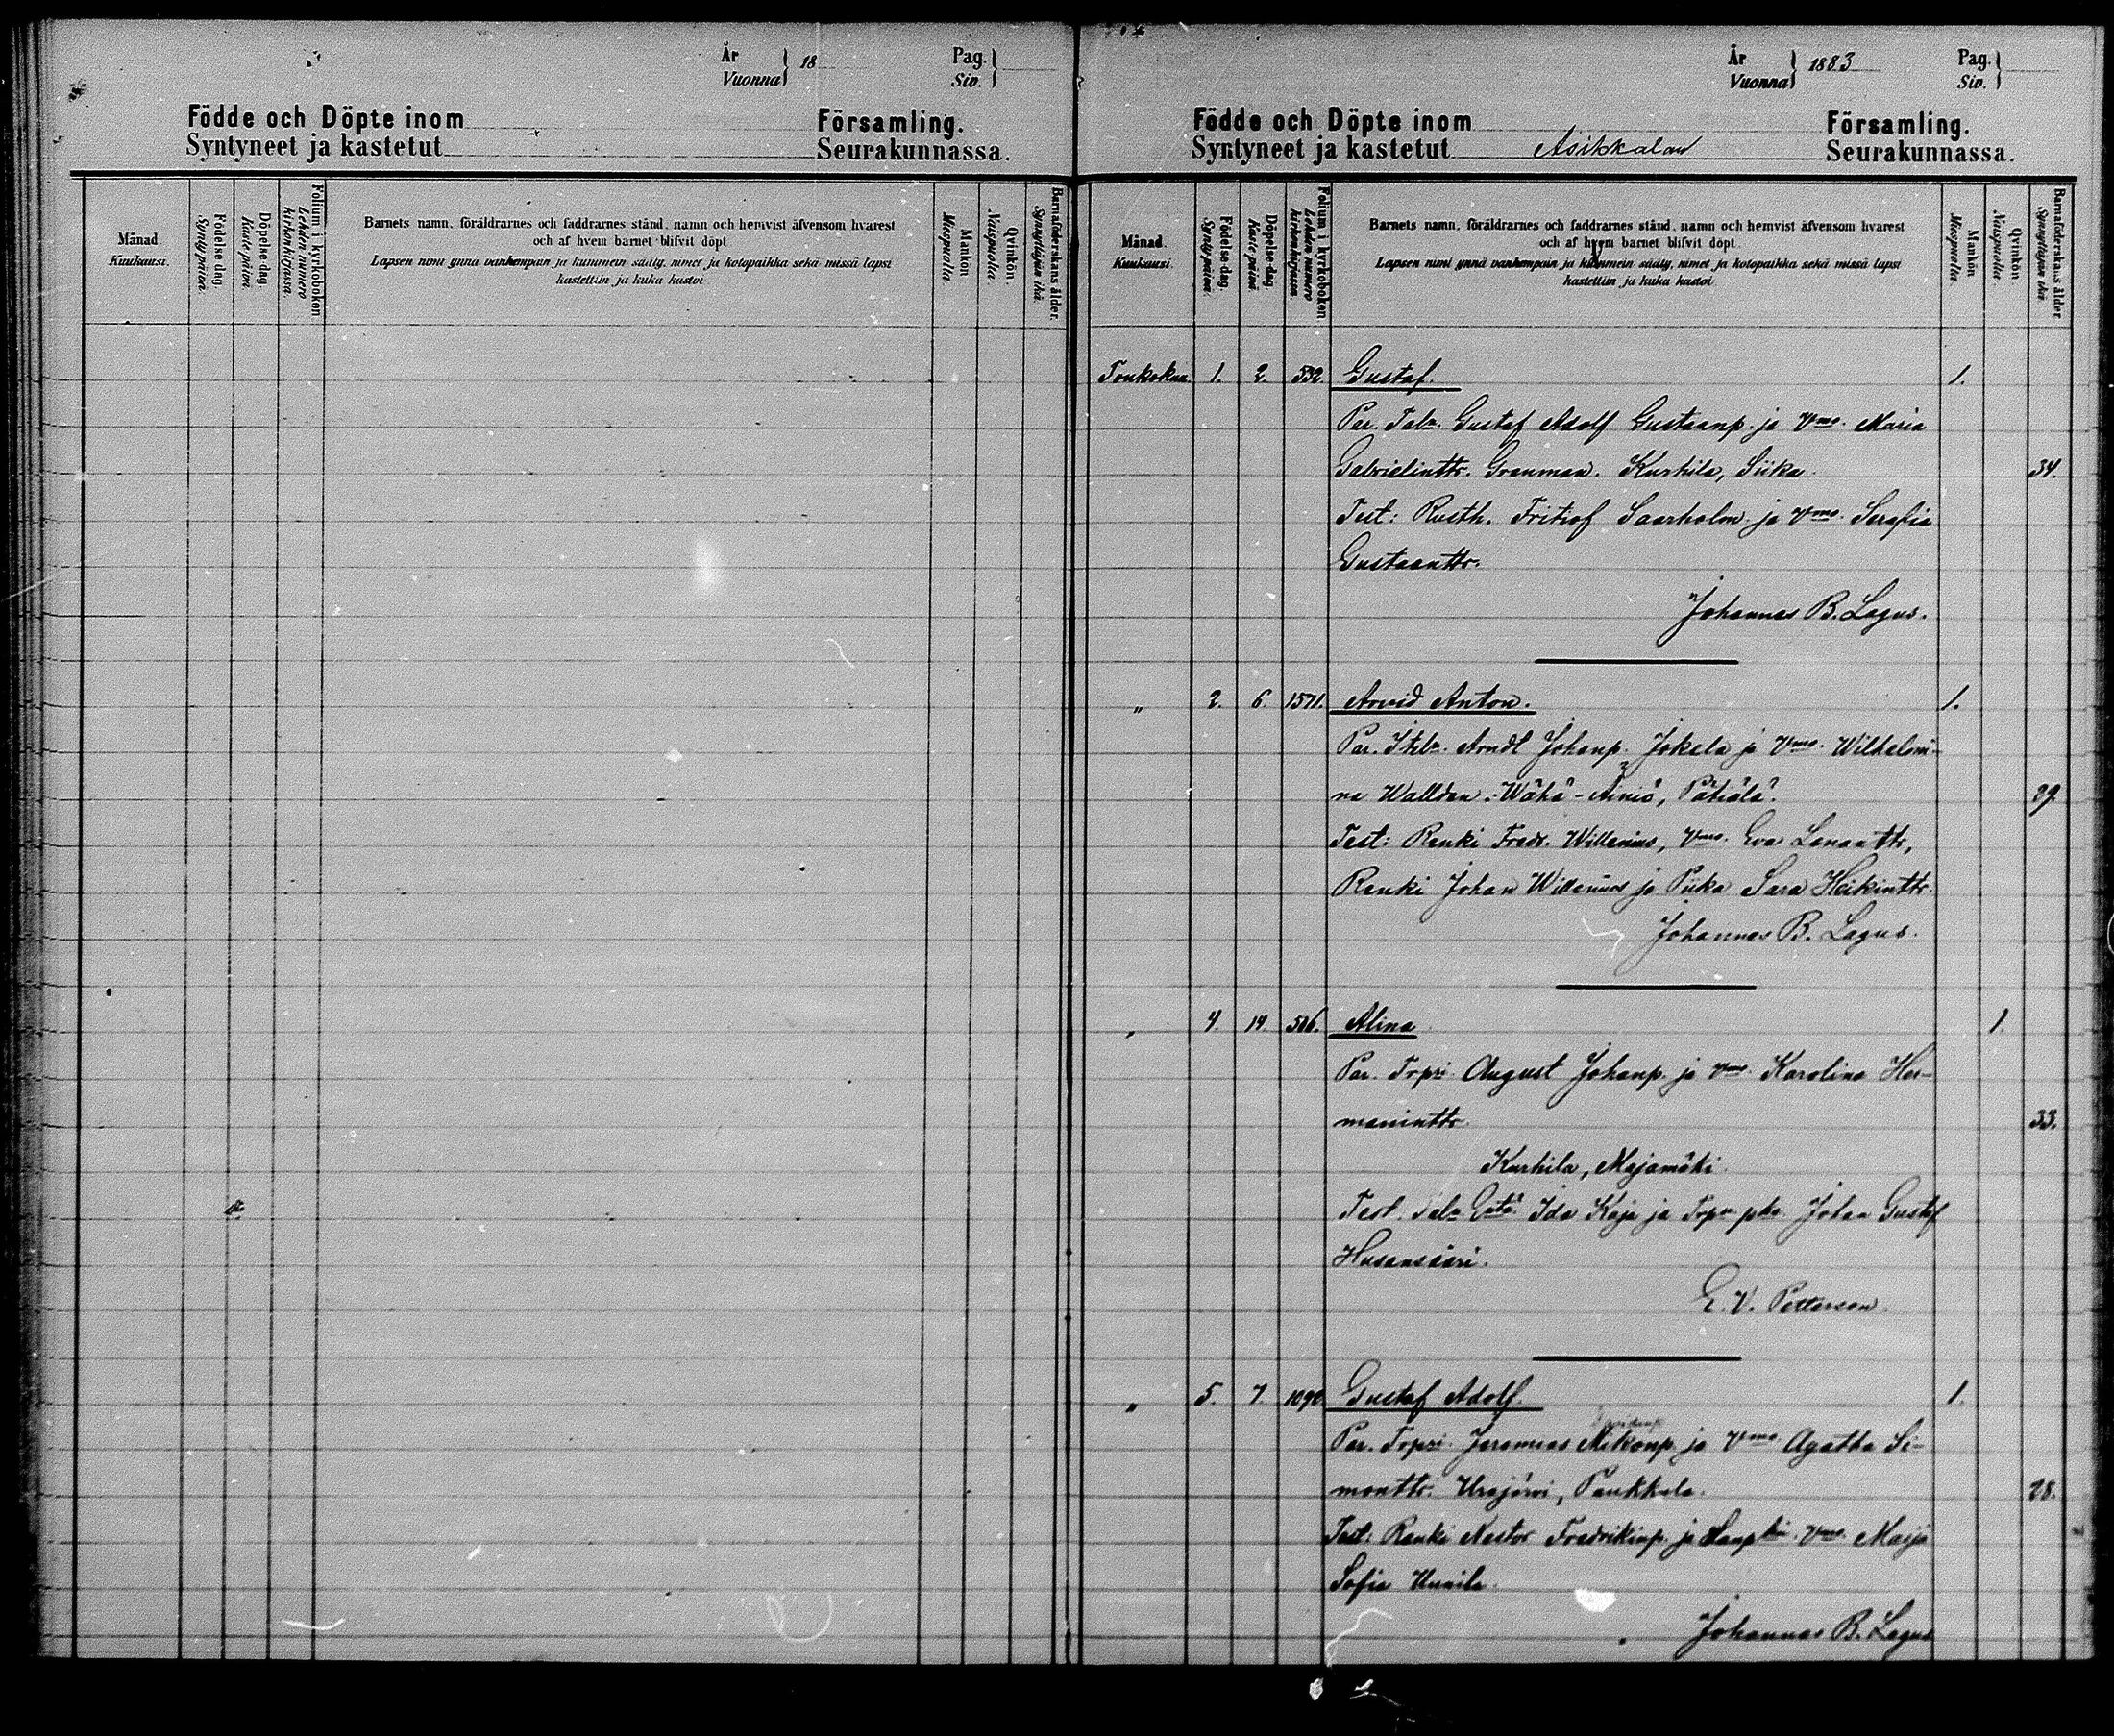 År
Vuonna } 18
Pag.
Siv. }
Födde och Döpte inom Församling.
Syntyneet ja kastetut Seurakunnassa.
Månad
Kuukausi.
Födelse dag.
Syntypäivä.
Döpelse dag
Kastepäivä.
Folium i kyrkoboken
Lehden numero
kirkonkirjassa.
Barnets namn, föräldrarnes och faddrarnes stånd, namn och hemvist äfvensom hvarest
och af hvem barnet blifvit döpt
Lapsen nimi ynnä vanhempain ja kummein sääty, nimet ja kotopaikka sekä missä lapsi
kastettiin ja kuka kastoi
Mankön
Miespuolia.
Qvinkön.
Naispuolia.
Barnaföderskans ålder.
Synnyttäjän ikä.
År
Vuonna } 1883
Pag.
Siv. }
Födde och Döpte inom Församling.
Syntyneet ja kastetut Asikkalan Seurakunnassa.
Månad.
Kuukausi.
Födelse dag.
Syntypäivä.
Döpelse dag
Kastepäivä
Folium i kyrkoboken
Lehden numero
kirkonkirjassa.
Barnets namn, föräldrarnes och faddrarnes stånd, namn och hemvist äfvensom hvarest
och af hvem barnet blifvit döpt.
Lapsen nimi ynnä vanhempain ja kummein sääty, nimet ja kotopaikka sekä missä lapsi
kastettiin ja kuka kastoi
Mankön
Miespuolia
Qvinkön
Naispuolia.
Barnaföderskans ålder
Synnyttäjän ikä
Toukokuu 1. 2. 532 Gustaf. 1.
Par. Talr. Gustaf Adolf Gustaanp. ja Vmo. Maria
Gabrielinttr. Granman. Kurhila, Siika. 34.
Test: Rusth. Fritiof Saarholm ja Vmo. Serafia
Gustaanttr.
Johannes B. Lagus.
" 2. 6. 1571. Arvid Anton. 1.
Par. Itslr. Arndt Johanp. Jokela ja Vmo. Wilhelmi-
na Wallden. Wähä-Äiniö, Pätiälä. 29.
Test: Renki Fredr. Willenius, Vmo. Eva Lenanttr,
Renki Johan Willenius ja Piika Sara Heikinttr.
Johannes B. Lagus.
" 4. 14. 506. Alina 1.
Par. Trpri. August Johanp. ja Vmo. Karolina Her-
maninttr. 33.
Kurhila, Majamäki.
Test. Talr Ida Kaja ja Trpr Johan Gustaf
E. V. Petterson.
" 5. 7. 1090 Gustaf Adolf. 1.
Par. Trpri. Jeremias Mikonp. ja Vmo. Agatha Si-
monttr. Urajärvi, Paukkala. 28.
Test: Renki Nestor Fredrikinp. ja Vmo. Maija
Sofia Unnila.
Johannes B. Lagus